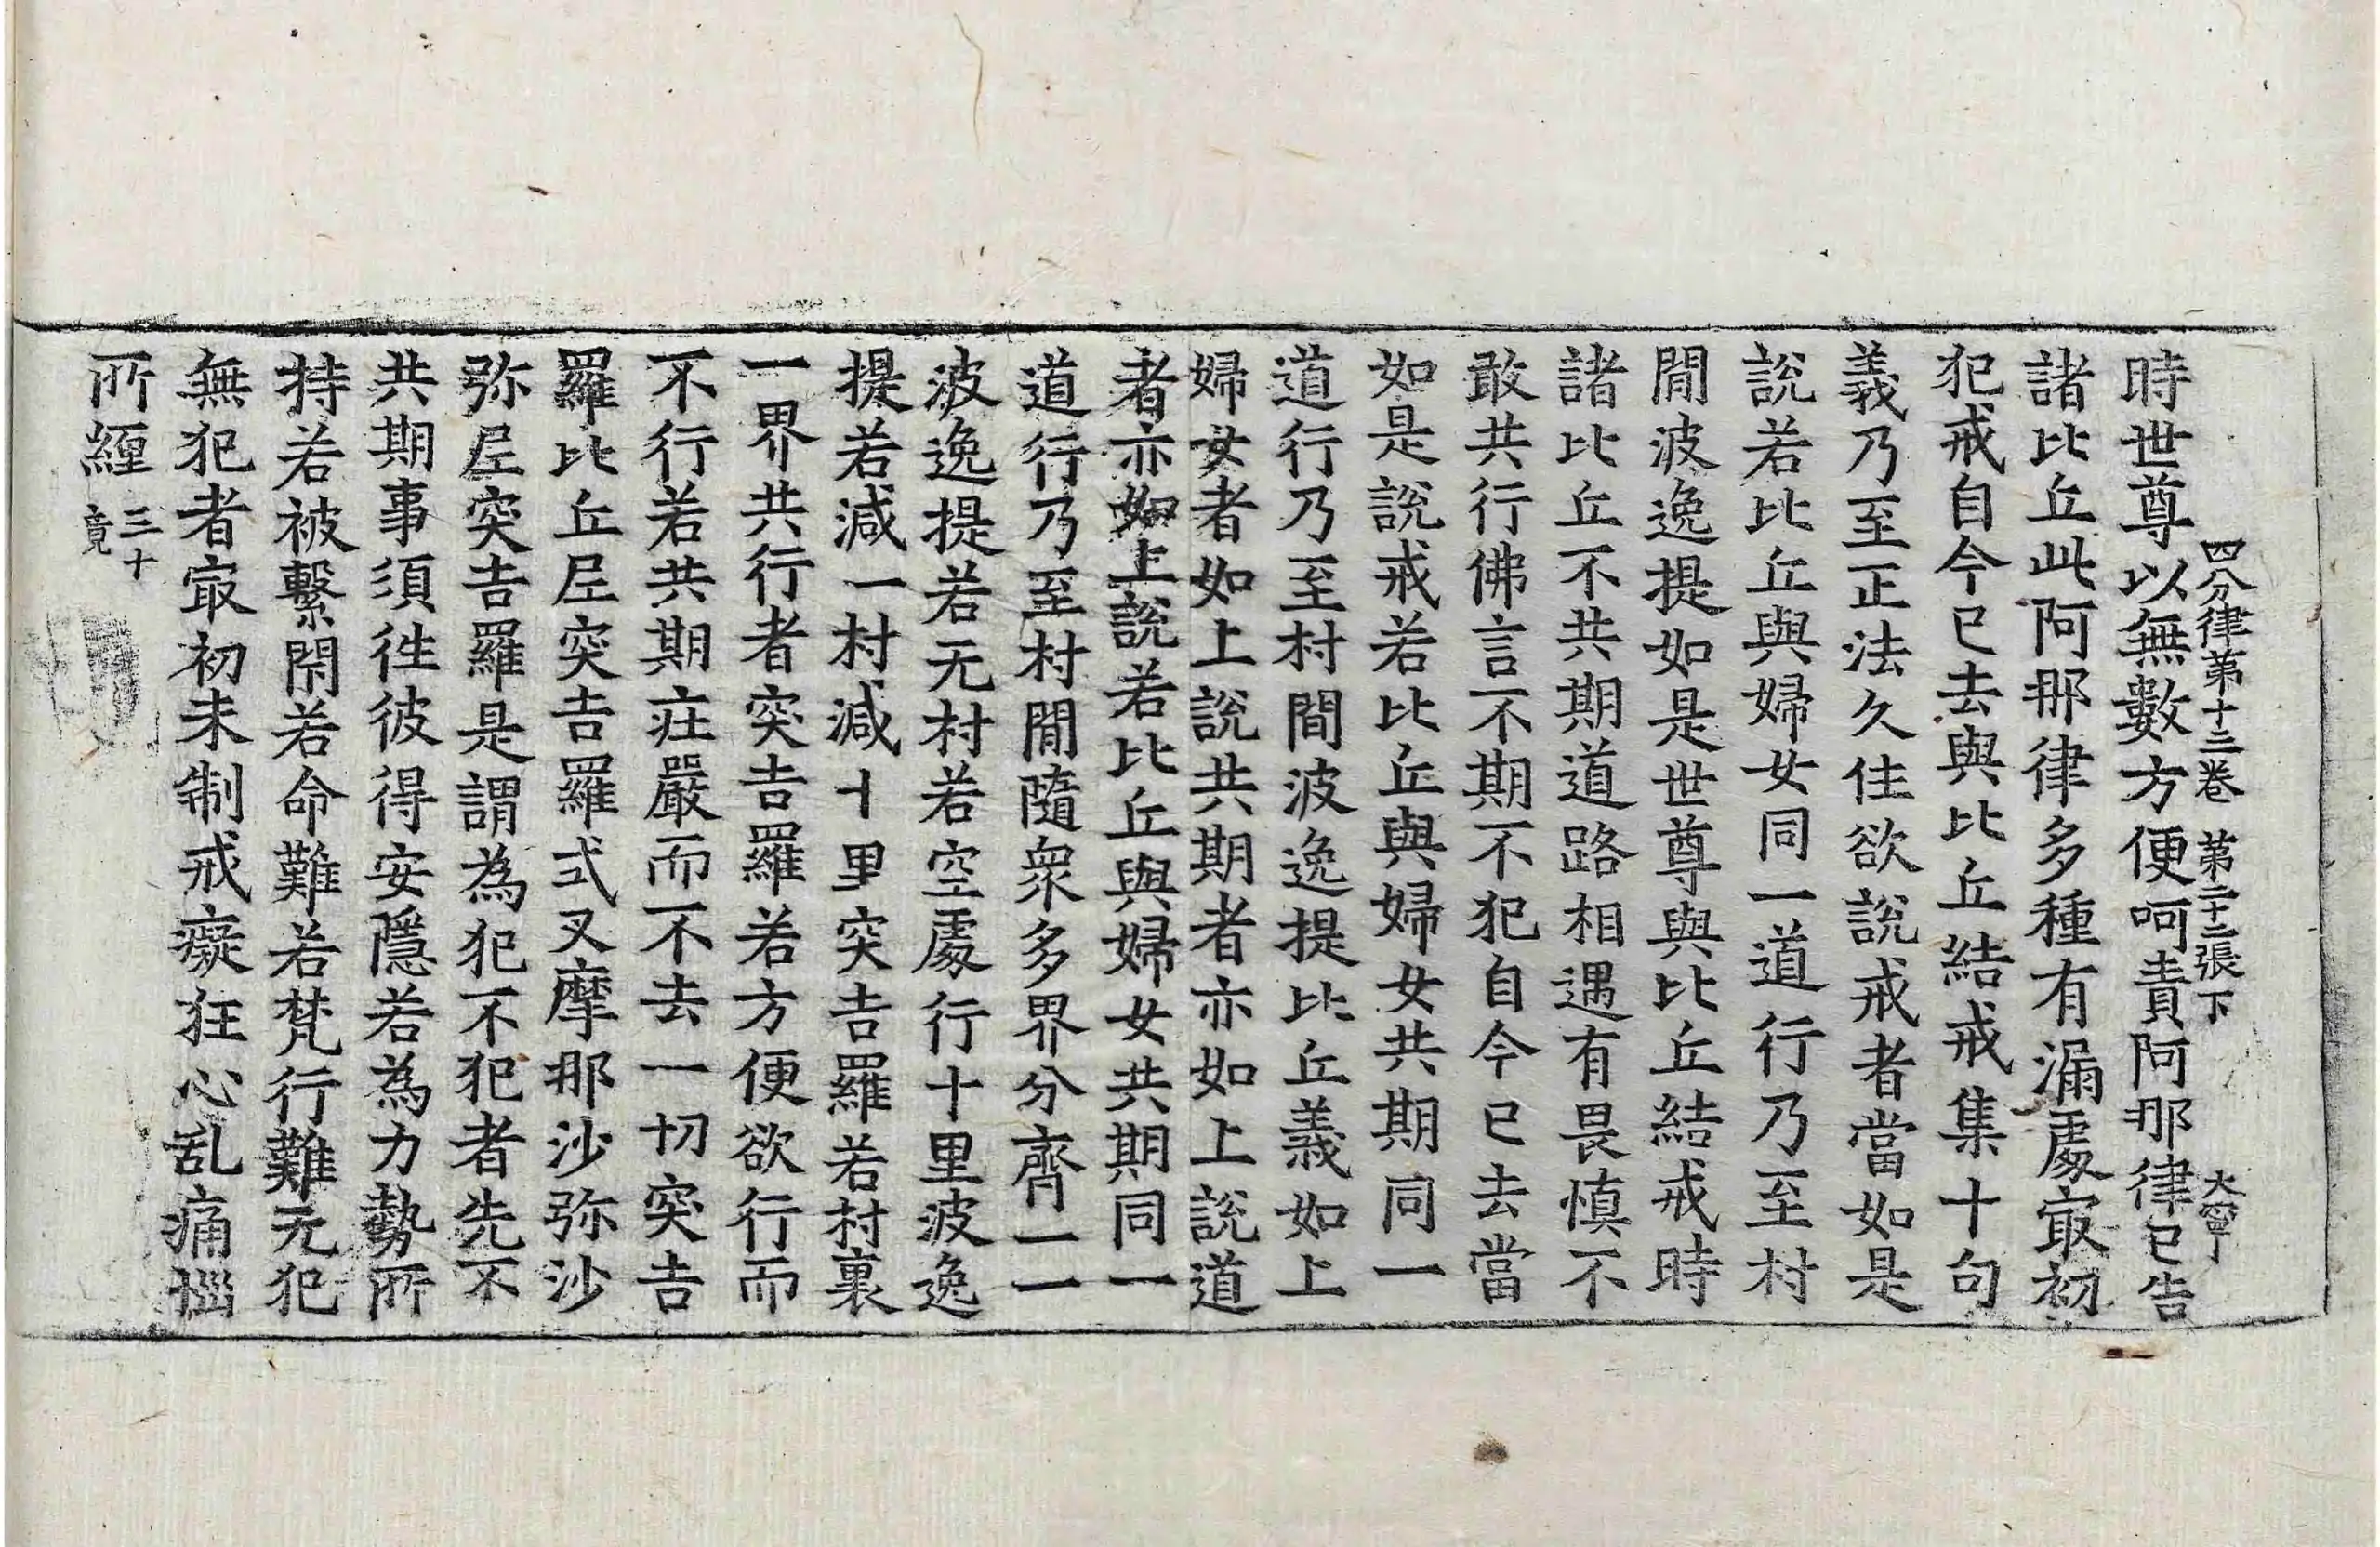 四分律第十三卷 第二十二張 下 大寧
時世尊以無數方便呵責阿那律已告
諸比丘此阿那律多種有漏處㝡初
犯戒自今已去與比丘結戒集十句
義乃至正法久住欲說戒者當如是
說若比丘與婦女同一道行乃至村
閒波逸提如是世尊與比丘結戒時
諸比丘不共期道路相遇有畏慎不
敢共行佛言不期不犯自今已去當
如是說戒若比丘與婦女共期同一
道行乃至村閒波逸提比丘義如上
婦女者如上說共期者亦如上說道
者亦如上說若比丘與婦女共期同一
道行乃至村閒隨衆多界分齊一一
波逸提若无村若空處行十里波逸
提若減一村減十里突吉羅若村裏
一界共行者突吉羅若方便欲行而
不行若共期庄嚴而不去一切突吉
羅比丘尼突吉羅式叉摩那沙弥沙
弥尼突吉羅是謂為犯不犯者先不
共期事須往彼得安隱若為力勢所
持若被繫閇若命難若梵行難无犯
無犯者㝡初未制戒癡狂心乱痛惱
所纏 三十竟